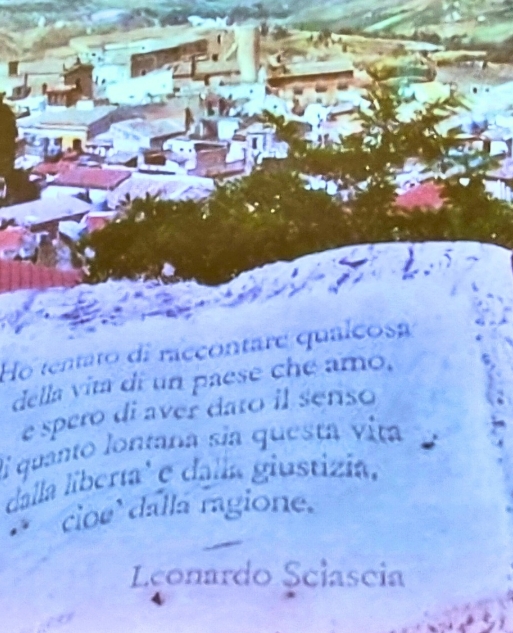 Ho tentato di raccontare qualcosa
della vita di un paese che amo,
e spero di aver dato il senso
di quanto lontana sia questa vita
dalla liberta' e dalla giustizia,
cioe' dalla ragione.
Leonardo Sciascia